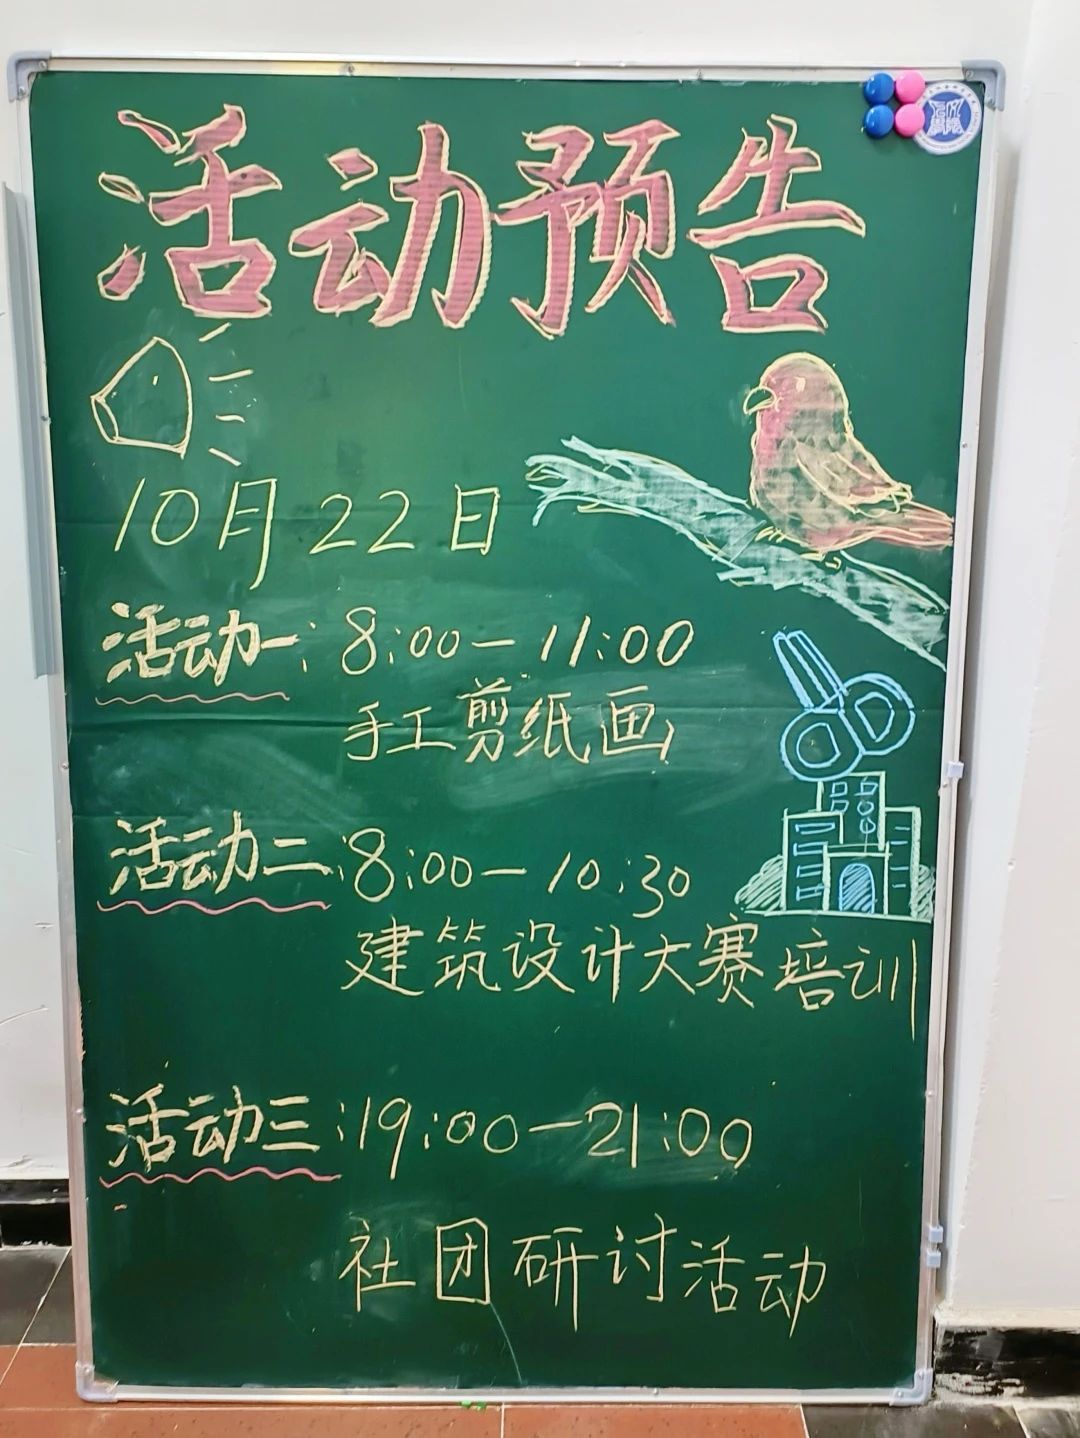 活动预告
10月22日
活动一:8:00-11:00
手工剪纸画
活动二:8:00-10:30
建筑设计大赛培训
活动三:19:00-21:00
社团研讨活动